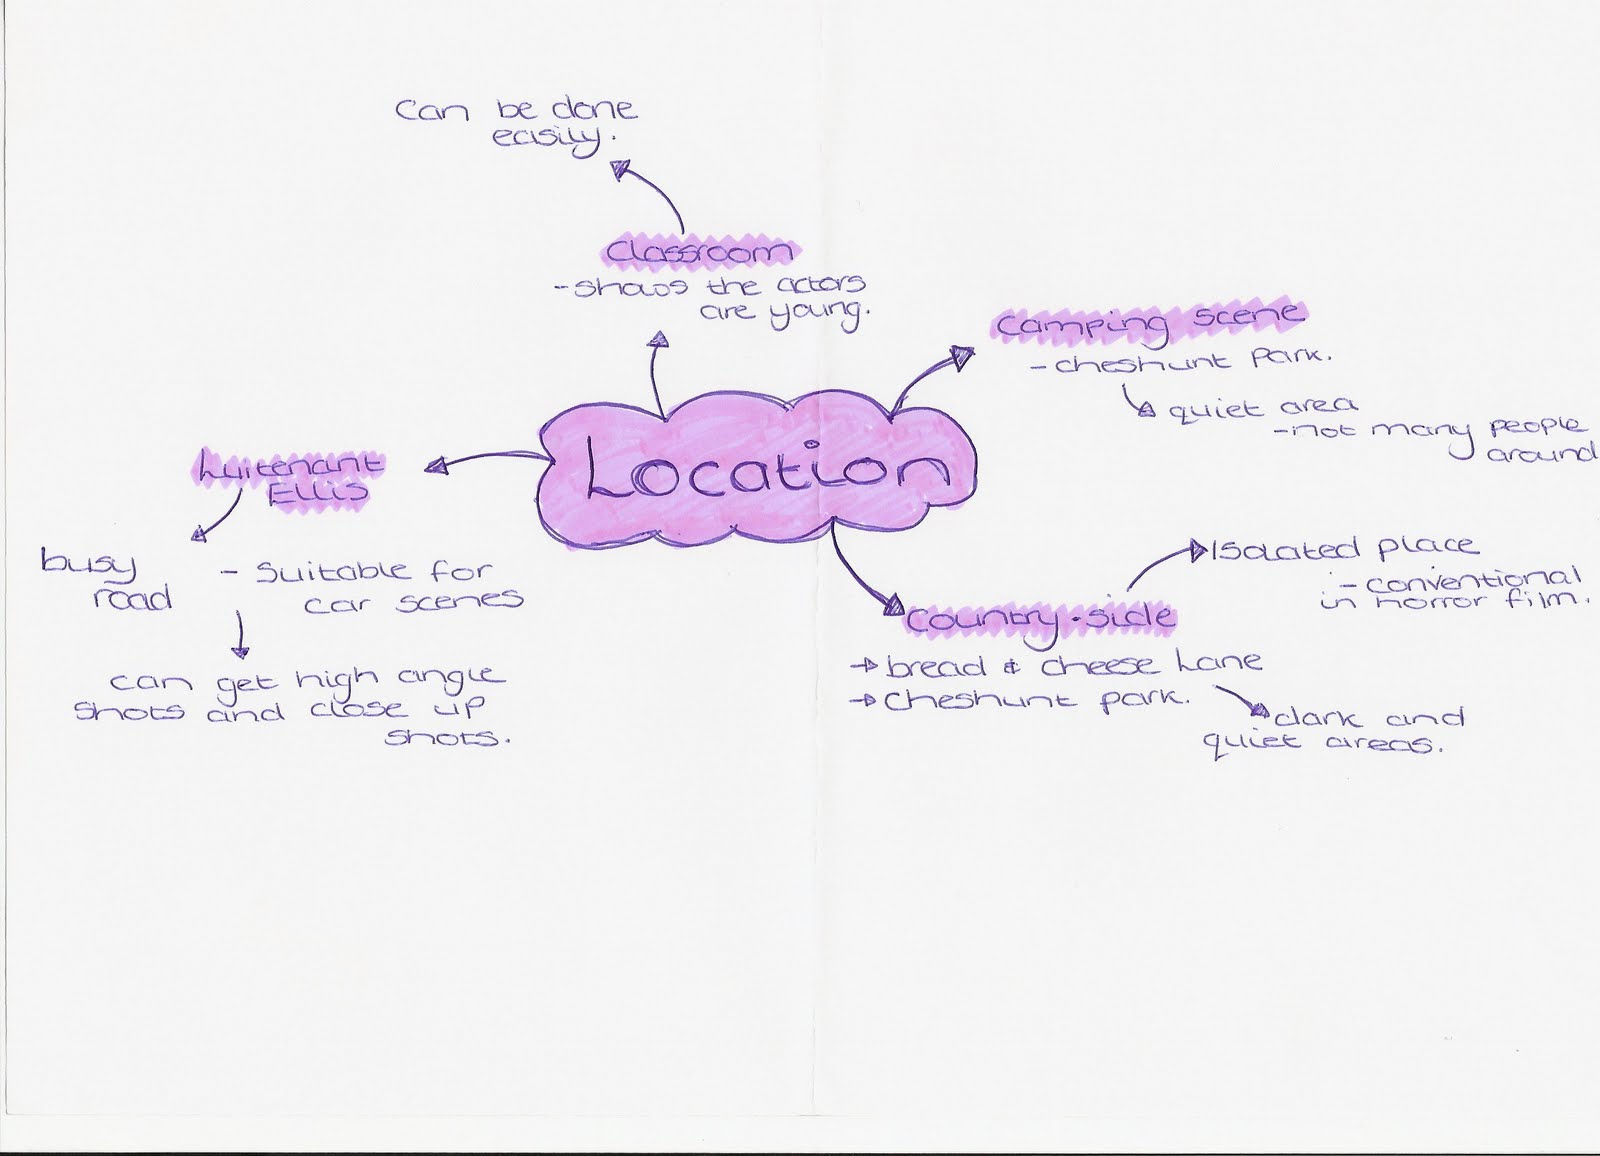 Can be done
easily.
Classroom
- shows the actors
are young.
Camping Scene
- cheshunt park.
quiet area
- not many people
around
Location
Luitenant
Ellis
busy
road
- Suitable for
car scenes
can get high angle
shots and close up
shots.
Isolated place
- conventional
in horror film.
Country-side
→ bread & cheese Lane
→ cheshunt park.
dark and
quiet areas.